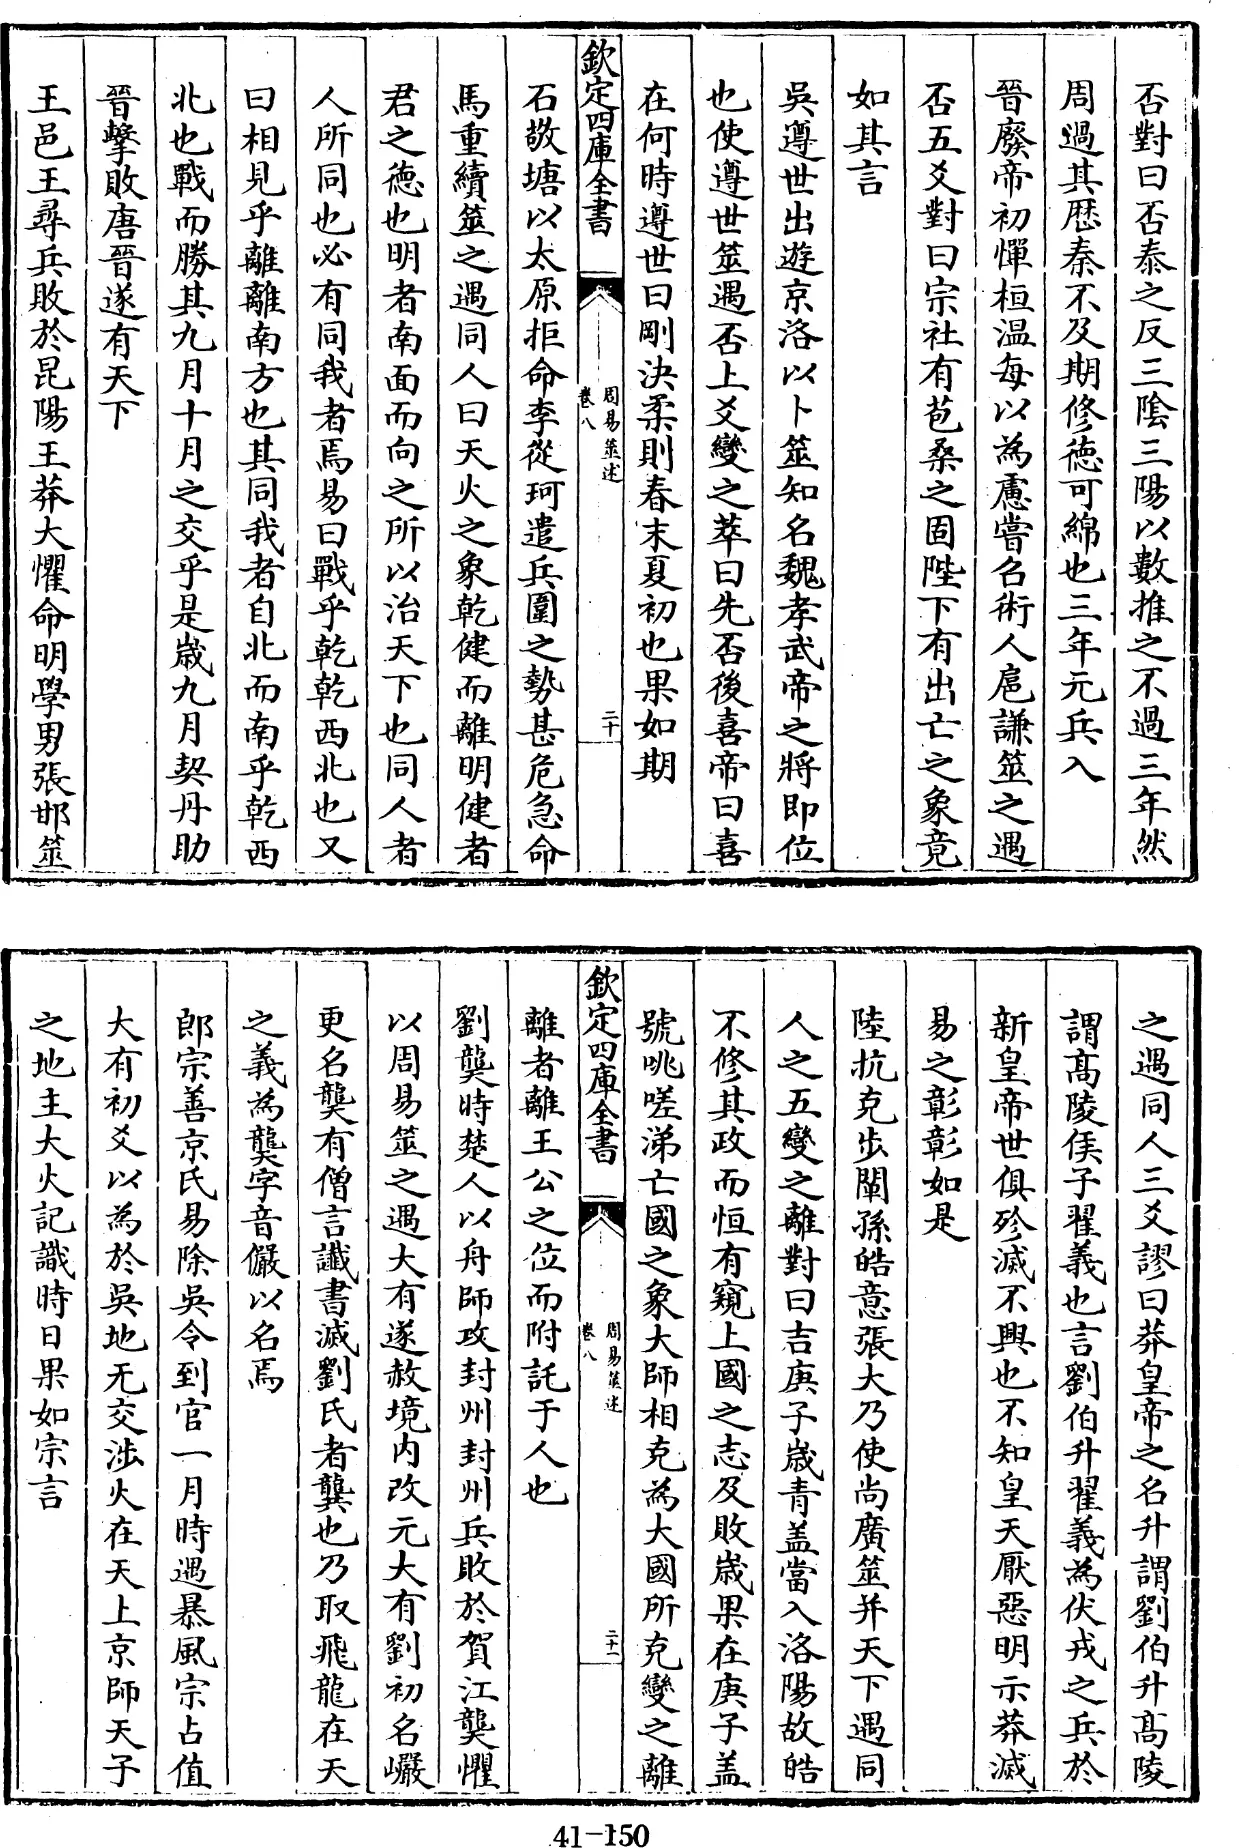 否對曰否泰之反三隂三陽以數推之不過三年然
周過其厯秦不及期修徳可綿也三年元兵入
晉廢帝初憚桓温每以為慮嘗召術人扈謙筮之遇
否五爻對曰宗社有苞桑之固陛下有出亡之象竟
如其言
吳遵世出遊京洛以卜筮知名魏孝武帝之將即位
也使遵世筮遇否上爻變之萃曰先否後喜帝曰喜
在何時遵世曰剛決柔則春末夏初也果如期
欽定四庫全書
周易筮述
卷八
二十
石敬塘以太原拒命李從珂遣兵圍之勢甚危急命
馬重續筮之遇同人曰天火之象乾健而離明健者
君之徳也明者南面而向之所以治天下也同人者
人所同也必有同我者焉易曰戰乎乾乾西北也又
曰相見乎離離南方也其同我者自北而南乎乾西
北也戰而勝其九月十月之交乎是嵗九月契丹助
晉擊敗唐晉遂有天下
王邑王尋兵敗於昆陽王莽大懼命明學男張邯筮
之遇同人三爻謬曰莽皇帝之名升謂劉伯升髙陵
謂髙陵侯子翟義也言劉伯升翟義為伏戎之兵於
新皇帝世俱殄滅不興也不知皇天厭惡明示莽滅
易之彰彰如是
陸抗克步闡孫皓意張大乃使尚廣筮并天下遇同
人之五變之離對曰吉庚子嵗青盖當入洛陽故皓
不修其政而恒有窺上國之志及敗嵗果在庚子盖
號咷嗟涕亡國之象大師相克為大國所克變之離
欽定四庫全書
周易筮述
卷八
二十一
離者離王公之位而附託于人也
劉龑時楚人以舟師攻封州封州兵敗於賀江龑懼
以周易筮之遇大有遂赦境内改元大有劉初名巖
更名龑有僧言讖書滅劉氏者龔也乃取飛龍在天
之義為龑字音儼以名焉
郎宗善京氏易除吳令到官一月時遇暴風宗占值
大有初爻以為於吳地无交涉火在天上京師天子
之地主大火記識時日果如宗言
41-150